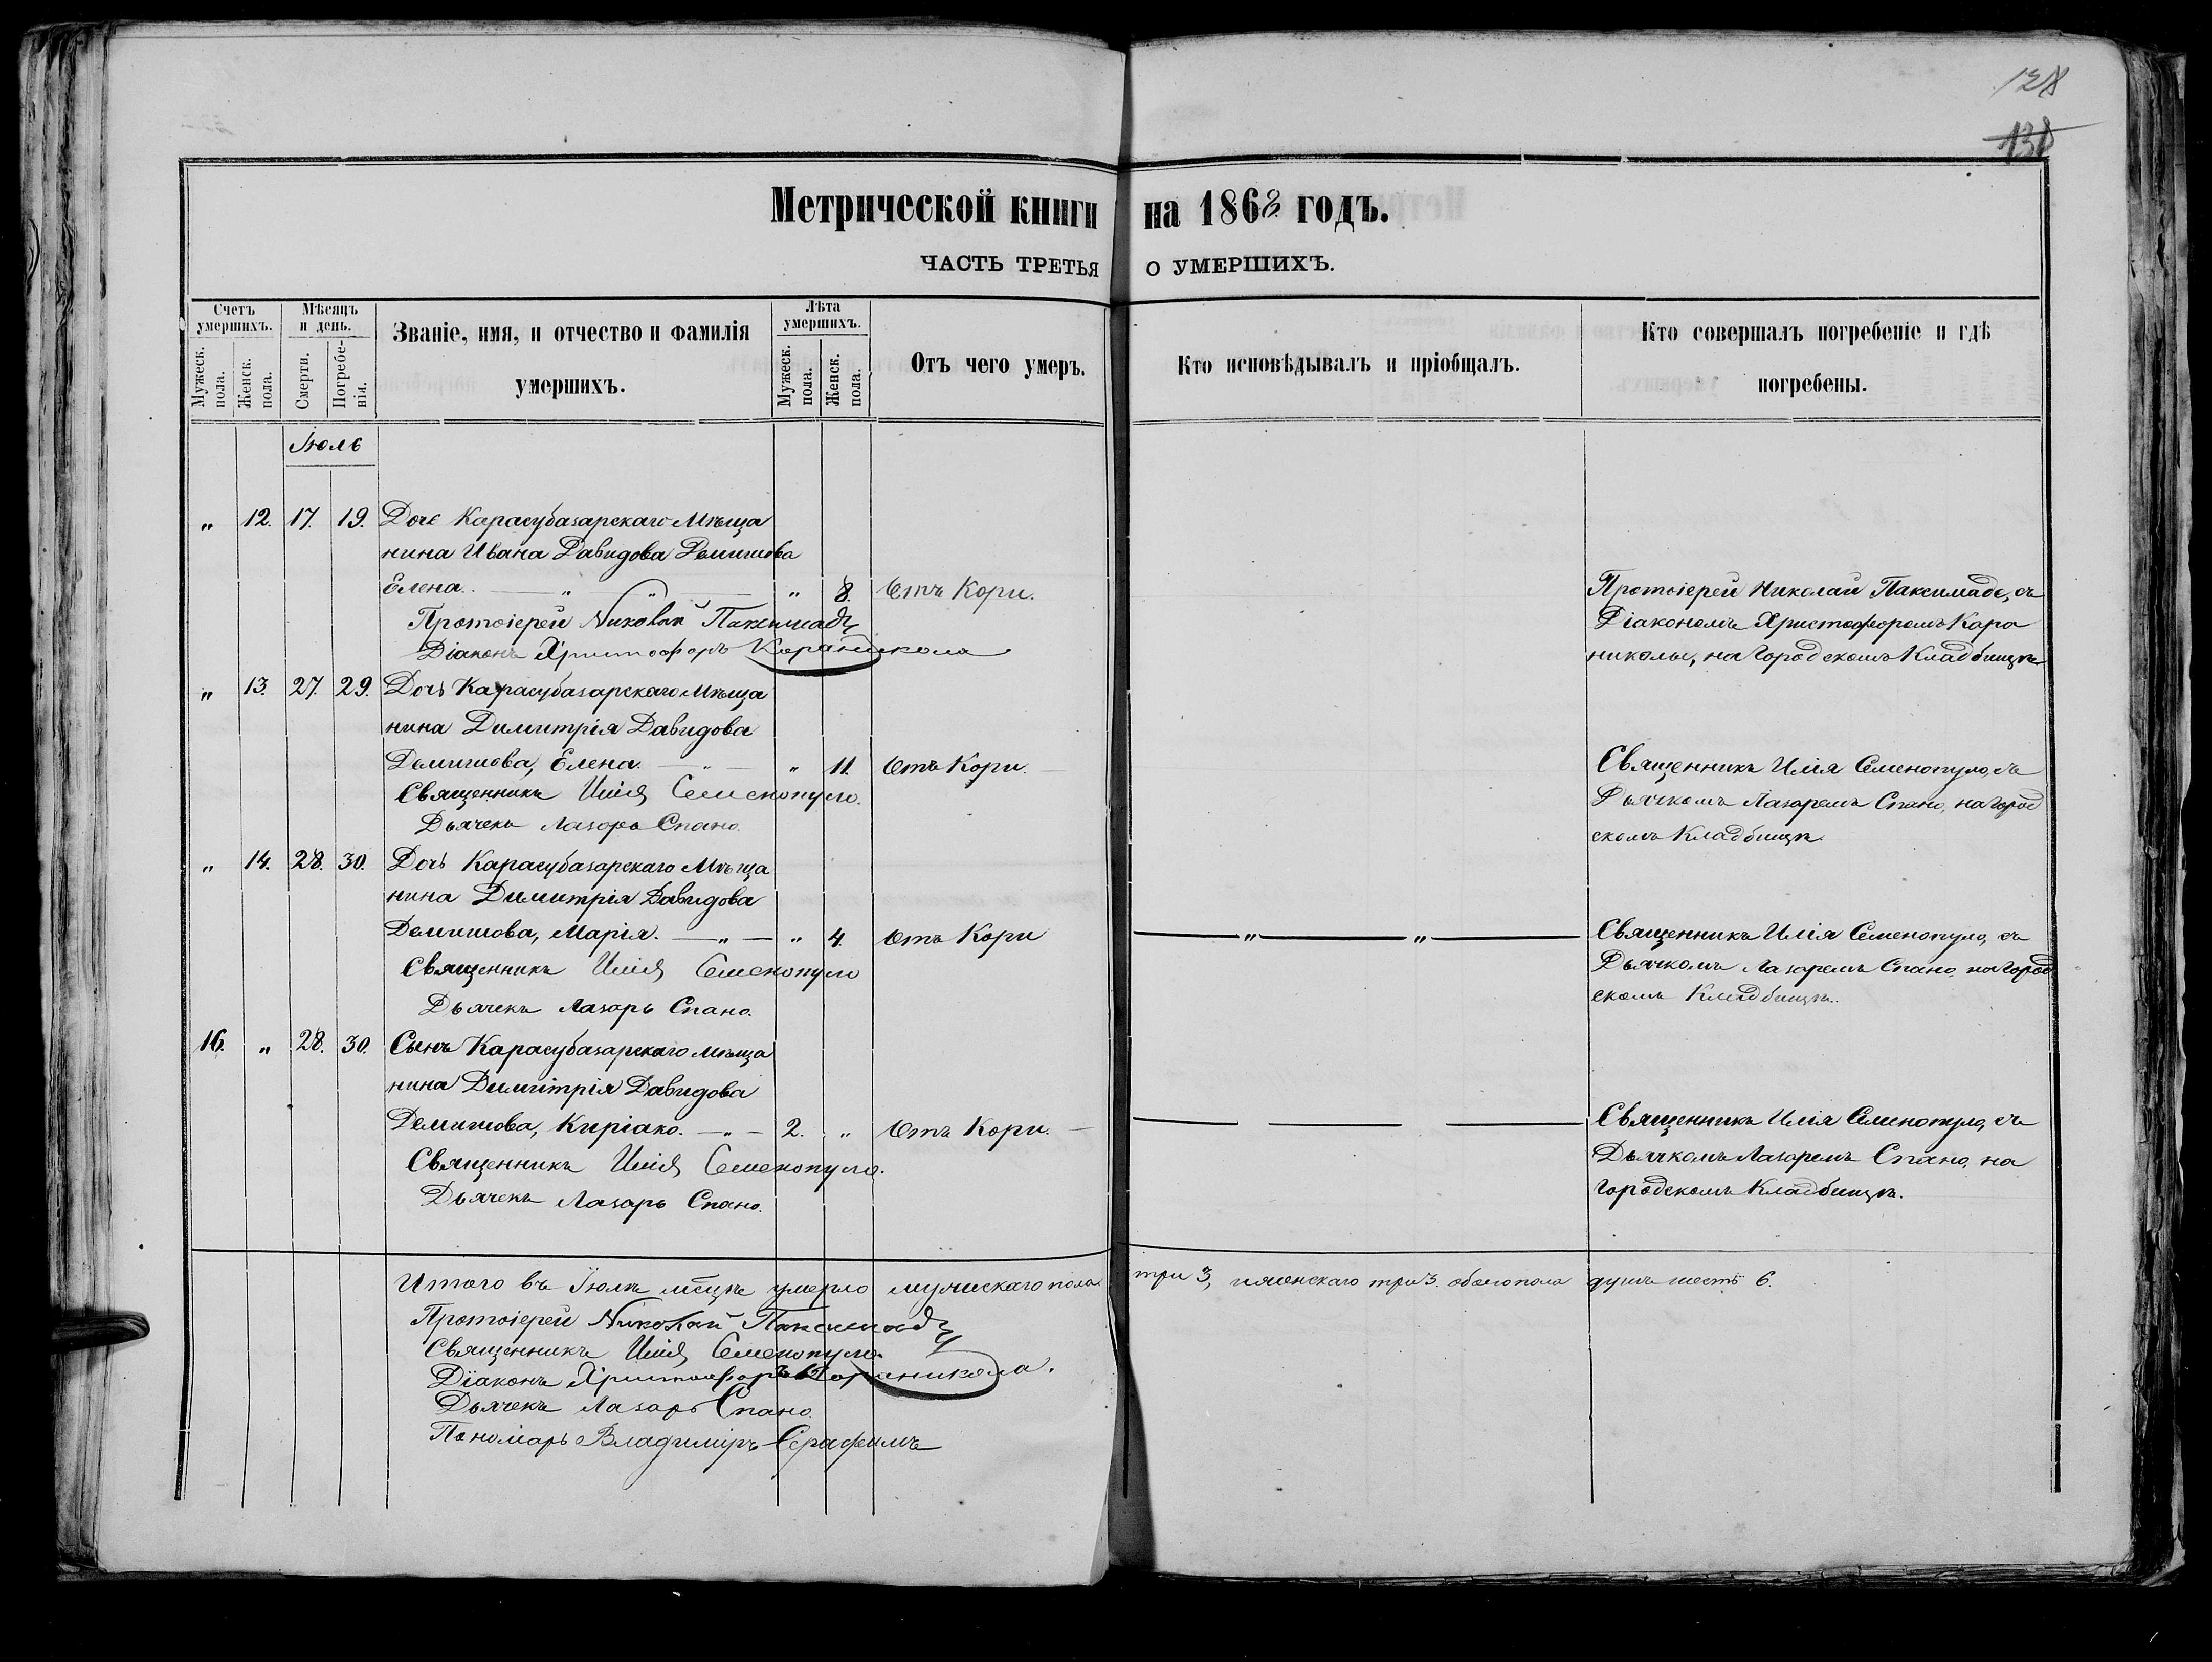 128
138
Метрической книги на 1868 годъ.
ЧАСТЬ ТРЕТЬЯ О УМЕРШИХЪ.
Счетъ умершихъ.
Мужеск. пола.
Женск. пола.
Мѣсяцъ и день.
Смерти.
Погребенія.
Званіе, имя, и отчество и фамилія умершихъ.
Лѣта умершихъ.
Мужеск. пола.
Женск. пола.
Отъ чего умеръ.
Кто исповѣдывалъ и пріобщалъ.
Кто совершалъ погребеніе и гдѣ погребены.
Іюль
" 12. 17. 19. Дочь Карасубазарскаго Мѣща
нина Ивана Давидова Демишова
Елена. " " " 8. Отъ Кори.
Протоіерей Николай Паксимаде, съ
Діакономъ Христофоромъ Кара
николы, на Городскомъ Кладбищѣ
Протоіерей Николай Паксимади
Діаконъ Христофоръ Караникола
" 13. 27. 29. Дочь Карасубазарскаго Мѣща
нина Димитрія Давидова
Демишова, Елена. " " 11. Отъ Кори.
Священникъ Илія Семенопуло, съ
Дьячкомъ Лазаремъ Спано, на Город
скомъ Кладбищѣ.
Священникъ Илія Семенопуло.
Дьячекъ Лазарь Спано.
" 14. 28. 30. Дочь Карасубазарскаго Мѣща
нина Димитрія Давидова
Демишова, Марія. " " 4. Отъ Кори " "
Священникъ Илія Семенопуло, съ
Дьячкомъ Лазаремъ Спано, на Город
скомъ Кладбищѣ.
Священникъ Илія Семенопуло
Дьячекъ Лазарь Спано.
16. " 28. 30. Сынъ Карасубазарскаго мѣща
нина Димитрія Давидова
Демишова, Киріако. " 2. " Отъ Кори.
Священникъ Илія Семенопуло, съ
Дьячкомъ Лазаремъ Спано, на
Городскомъ Кладбищѣ.
Священникъ Илія Семенопуло.
Дьячекъ Лазарь Спано.
Итого въ Іюлѣ мѣсцѣ умерло мужескаго пола три 3, женскаго три 3. обоего пола душъ шесть 6.
Протоіерей Николай Паксимади
Священникъ Илія Семенопуло.
Діаконъ Христофоръ Караникола.
Дьячекъ Лазарь Спано.
Пономарь Владиміръ Серафимъ